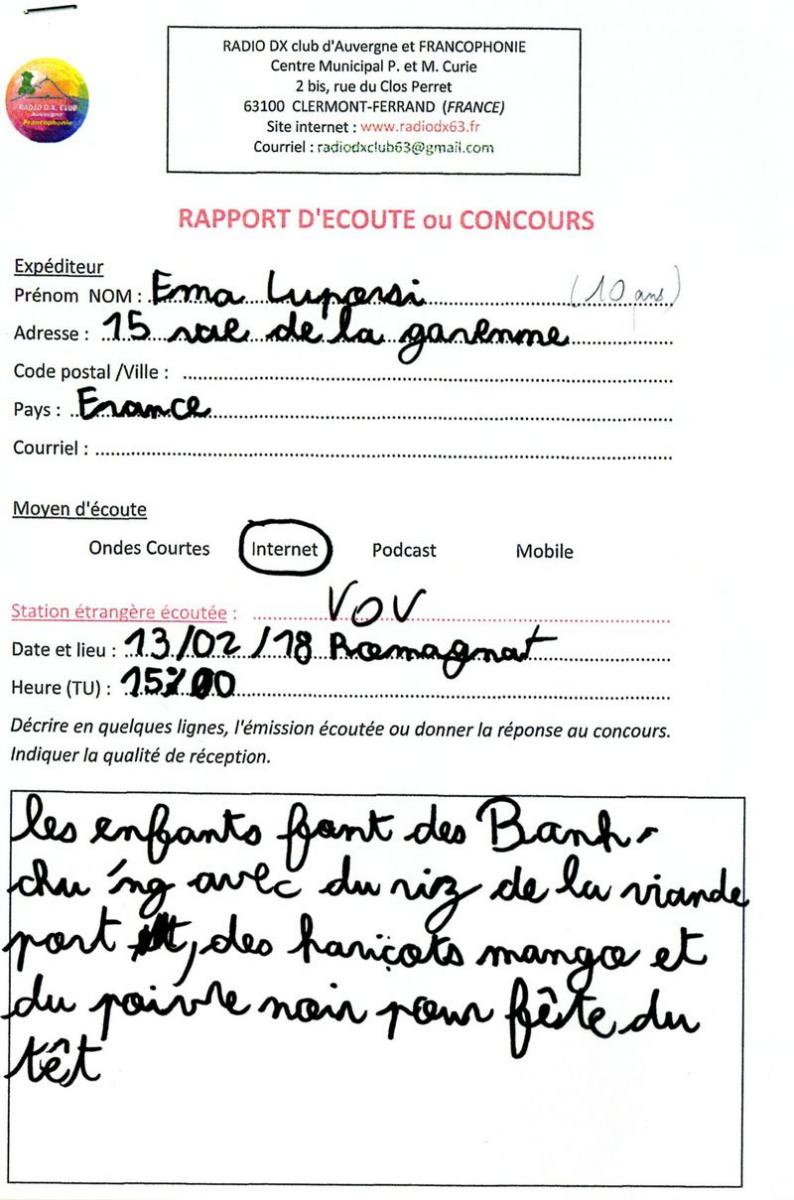 RADIO DX club d'Auvergne et FRANCOPHONIE
Centre Municipal P. et M. Curie
2 bis, rue du Clos Perret
63100 CLERMONT-FERRAND (FRANCE)
Site internet : www.radiodx63.fr
Courriel : radiodxclub63@gmail.com
RADIO D.X. CLUB
Auvergne
Francophonie
RAPPORT D'ECOUTE ou CONCOURS
Expéditeur
Prénom NOM : Ema Lupersi (10 ans)
Adresse : 15 rue de la garenne
Code postal /Ville :
Pays : France
Courriel :
Moyen d'écoute
Ondes Courtes Internet Podcast Mobile
Station étrangère écoutée : VOV
Date et lieu : 13/02/18 Romagnat
Heure (TU) :
Décrire en quelques lignes, l'émission écoutée ou donner la réponse au concours.
Indiquer la qualité de réception.
les enfants font des Banh-
chu'ng avec du riz de la viande
port, des haricots mango et
du poivre noir pour fêste du
têt